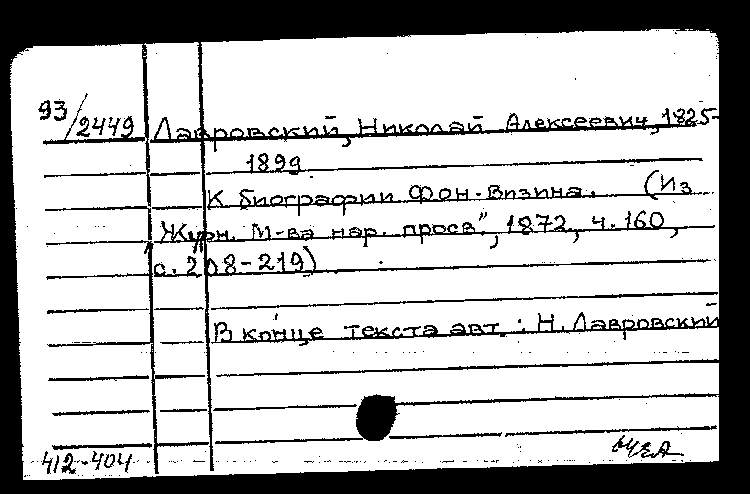 93/2449 Лавровский, Николай Алексеевич, 1825-
1899.
К биографии Фон-Визина. (Из
"Журн. М-ва нар. просв.", 1872, ч. 160,
с. 208-219)
В конце текста авт.: Н. Лавровский
412-404